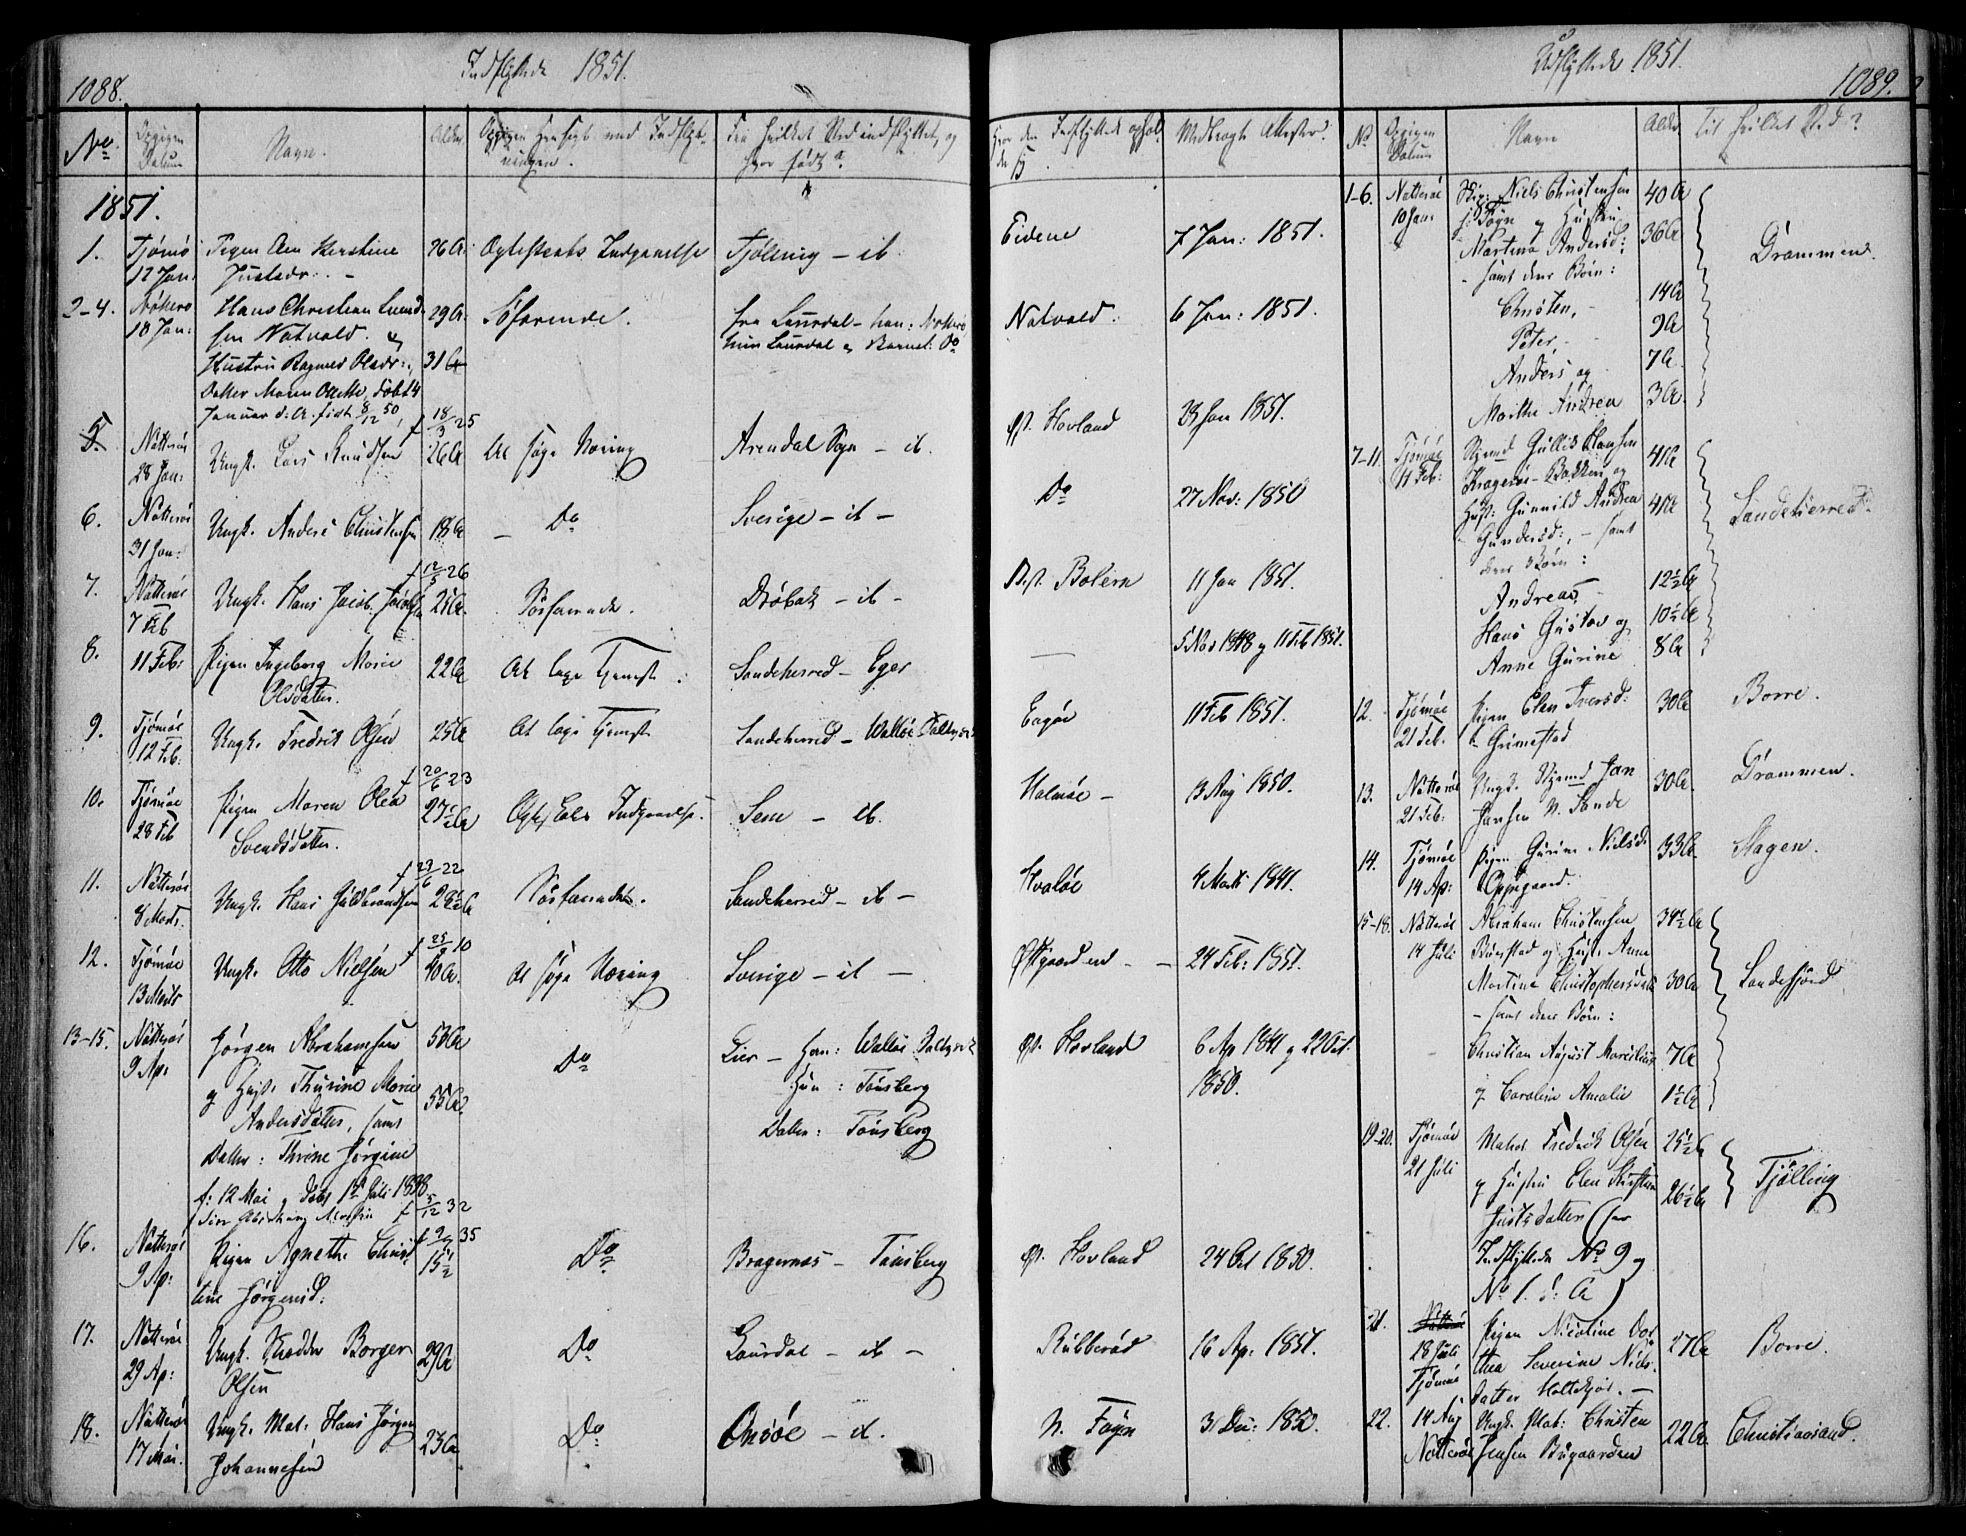 1088.
Indflyttede 1851.
No
Datum
Navn.
Alder
1851.
1.
Tjømø
12 Jan:
Pigen Elen Kirstine
Justsdr. –
26 A:
Egteskabs Indgaaelse
Tjølling – ib.
Eidene
7 Jan: 1851.
2–4.
Nøtterø
10 Jan:
Hans Christian
sen Natvald. og
Hustru Ragnild Olsdr:,
Datter Maren Olette, døbt 14
Januar d. A. født 8/12 50,
29 A:
31 A
Søfarende.
fra Laurdal – han: Nøtterø
hun Laurdal og Barnet Do
Natvald.
6 Jan: 1851.
5.
Nøtterøe
28 Jan:
Ungk. Lars Knudsen
f 18/3 25
26 A
At søge Næring
Arendal Sogn – ib.
Øst. Hovland
23 Jan 1851.
6.
Nøtterøe
31 Jan:
Ungk. Anders Christensen
18 A
Do
Sverige – ib –
Do
27 Nov: 1850
7.
Nøtterøe
7 Feb
Ungk. Hans Jacob Jacobsen
f 12/5 26
25 A.
Søfarende.
Drøbak – ib –
Bolærn
11 Jan 1851.
8.
11 Feb:
Pigen Ingeborg Marie
Olsdatter.
22 A
At tage Tjeneste.
Sandeherred – Eger
5 Nov 1848 og 11 Feb 1851.
9.
Tjømøe
12 Feb:
Ungk. Fredrik Olsen
25 A
At tage Tjeneste
Sandeherred – Walløe
11 Feb 1851.
10.
Tjømøe
28 Feb
Pigen Maren Olea
Svendsdatter.
f 20/6 23
27 1/2 A
Egteskabs Indgaaelse.
Sem – ib.
Holmøe –
13 Aug 1850.
11.
Nøtterøe
8 Marts.
Ungk. Hans Guldbrandsen
f 23/6 22
28 1/2 A
Søfarende.
Sandeherred – ib –
Hvaløe
4 Marts 1841.
12.
Tjømøe
13 Marts
Ungk. Otto Nielsen
f 25/9 10
40 A.
At søge Næring
Sverige – ib –
Østgaarden – –
24 Feb: 1851.
13–15.
Nøtterøe
9 Ap:
Jørgen Abrahamsen
og Hust. Thurine Marie
Andersdatter, samt
Datter: Thrine Jørgine
f: 12 Mai og døbt 1st Juli 1838
f 5/12 32
50 A
55 A.
Do
Lier – Han: Walløe
Hun: Tønsberg
Datter: Tønsberg
Øst. Hovland
6 Ap 1841 og 22 Oct.
1850.
16.
Nøtterøe
9 Ap:
Pigen Agnethe Christ
tine Jørgensd:
f 9/9 35
15 1/2
Do
Bragernæs – Tønsberg
Øst. Hovland
24 Oct 1850.
17.
Nøtterøe
29 Ap:
Ungk. Skrædder Borger
Olsen
29 A
Do
Laurdal – ib –
Rubberød
16 Ap: 1851.
18.
Nøtterøe
17 Mai.
Ungk. Mat: Hans Jørgen
Johannesen
23 A.
Do
Onsøe – ib.
N. Føyn
31 Dec: 1850.
Udflyttede 1851.
1089.
No
Datum
Navn
Alder
Til hvilket Sted?
1–6.
Nøtterøe
10 Jan:
Niels Christensen
Føyn og Hustru
Martine Andersd:
– samt deres Børn:
Christen, –
Peter, –
Anders og
Marthe Andrea
40 A
36 A
14 A
9 A
7 A.
3 A.
Drammen.
7–11.
Tjømøe
11 Feb:
Gullik Hansen
Kragerøe-Bakken og
Hust: Gunnild Andrea
Gundersd:, – samt
deres Børn:
Andreas, –
Hans Gustav og
Anne Gurine
41 A
41 A
12 1/2 A
10 1/2 A
8 A
Sandeherred.
12.
Tjømøe
21 Feb.
Pigen Elen Iversd:
Grimestad
30 A
Borre.
13.
Nøtterøe
21 Feb:
Ungk. Jan
Jansen N. Sande
30 A.
Drammen.
14.
Tjømøe
14 Ap:
Pigen Gurine Nielsd.
Oppegaard.
33 A.
Slagen.
15–18.
Nøtterøe
14 Juli
Abraham Christensen
Buerstad og Hust. Anne
Martine Christophersdatter
– samt deres Børn:
Christian August Marcilius
og Caroline Amalie
34 1/2 A
30 A
7 A
1 1/2 A
Sandefjord
19–20.
Tjømøe
21 Juli
Matros Fredrik Olsen
og Hustru Elen Kirstine
Justsdatter (see
Indflyttede No 9 og
No 1. d: A)
25 1/2 A
26 1/2 A
Tjølling
21.
18 Juli
Tjømøe
Pigen Nicoline Dor
thea Severine Niels
datter Holtekjær. –
27 A
Borre.
22.
14 Aug
Nøtterøe
Ungk. Mat: Christen
Jensen Bugaarden
22 A.
Christiansand.